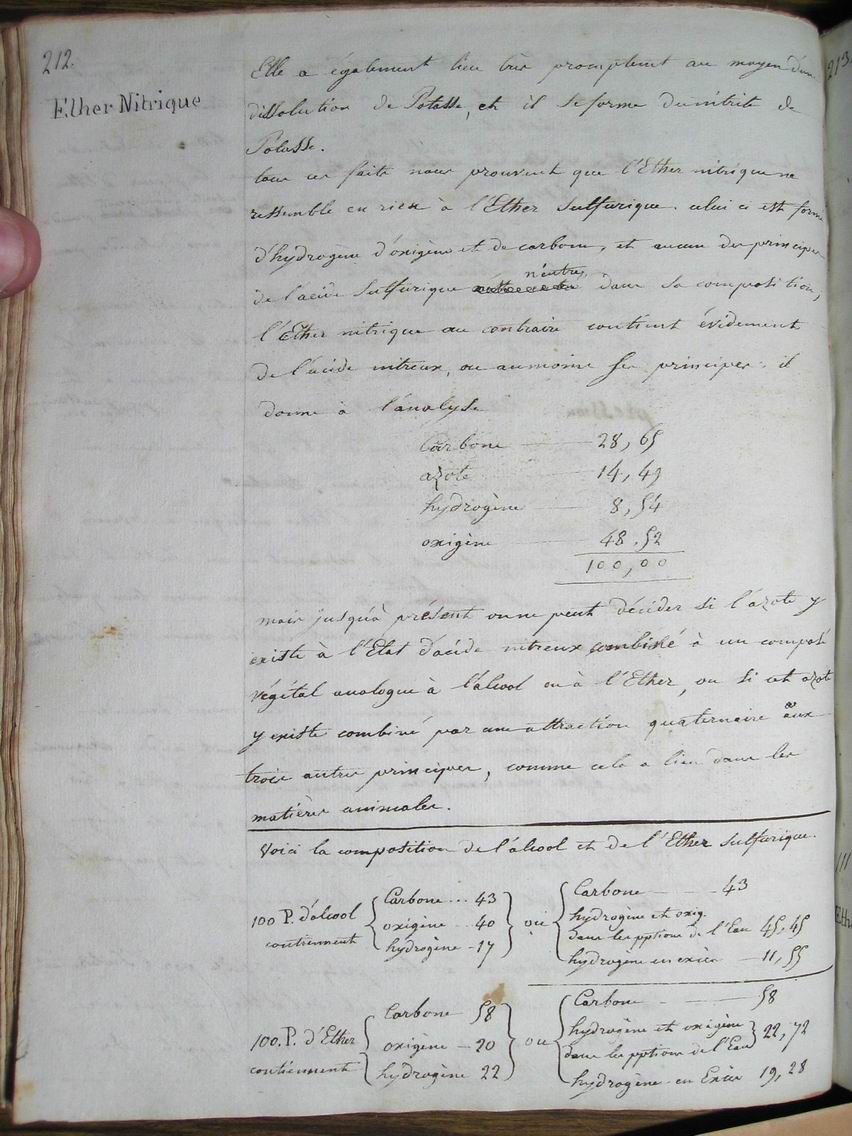 212.
Ether Nitrique
Elle a également lieu très promptement au moyen d'une
dissolution de Potasse, et il se forme du nitrite de
Potasse.
tous ces faits nous prouvent que l'Ether nitrique ne
ressemble en rien à l'Ether Sulfurique. celui ci est formé
d'hydrogène d'oxigène et de carbone, et aucun des principes
de l'acide Sulfurique n'entre dans sa composition,
l'Ether nitrique au contraire contient évidement
de l'acide nitreux, ou aumoins ses principes. il
donne à l'analyse
Carbone 28,65
azote 14,49
hydrogène 8,54
oxigène 48.52
100,00
mais jusqu'à présent on ne peut décider si l'azote y
existe à l'Etat d'acide nitreux combiné à un composé
végétal analogue à l'alcool ou à l'Ether, ou si cet azote
y existe combiné par une attraction quaternaire aux
trois autres principes, comme cela a lieu dans les
matières animales.
Voici la composition de l'alcool et de l'Ether Sulfurique.
100 P. d'alcool contiennent
Carbone ... 43
oxigène .. 40
hydrogène - 17
ou
Carbone 43
hydrogène et oxig.
dans les pptions de l'Eau 45,45
hydrogène en excès 11,55
100. P. d'Ether contiennent
Carbone 58
oxigène 20
hydrogène 22
ou
Carbone 58
hydrogène et oxigène
dans les pptions de l'Eau 22,72
hydrogène en Excès 19,28
213.